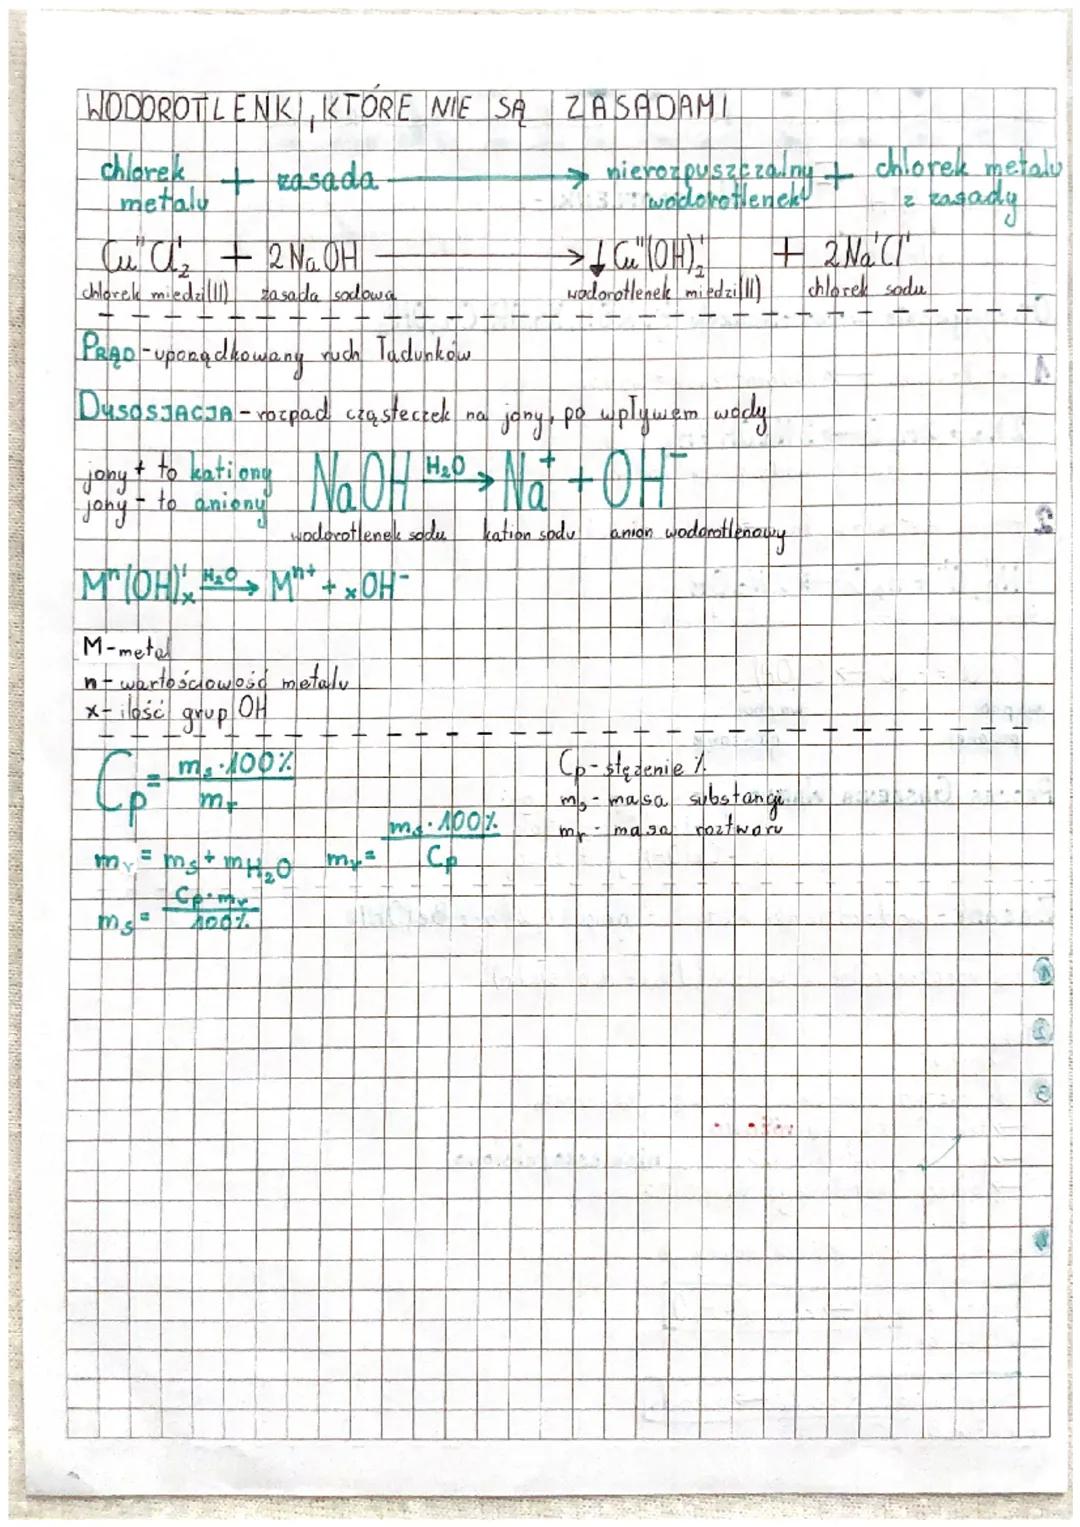 WODOROTLENKI, KTÓRE NIE SĄ ZASADAMI
chlorek metalu + zasada → nierozpuszczalny wodorotlenek + chlorek metalu z zasady
CuᴵᴵClᴵ₂ + 2NaOH → ↓Cuᴵᴵ(OH)ᴵ₂ + 2NaᴵClᴵ
chlorek miedzi(II) zasada sodowa wodorotlenek miedzi(II) chlorek sodu
PRĄD - uporządkowany ruch ładunków
DYSOSJACJA - rozpad cząsteczek na jony, po wpływem wody
jony + to kationy
jony - to aniony
NaOH H₂O→ Na⁺ + OH⁻
wodorotlenek sodu kation sodu anion wodorotlenowy
Mⁿ(OH)ᴵₓ H₂O→ Mⁿ⁺ + xOH⁻
M - metal
n - wartościowość metalu
x - ilość grup OH
Cp = mₛ · 100% / mᵣ
Cp - stężenie %
mₛ - masa substancji
mᵣ - masa roztworu
mᵣ = mₛ + mH₂O mᵣ = mₛ · 100% / Cp
mₛ = Cp · mᵣ / 100%